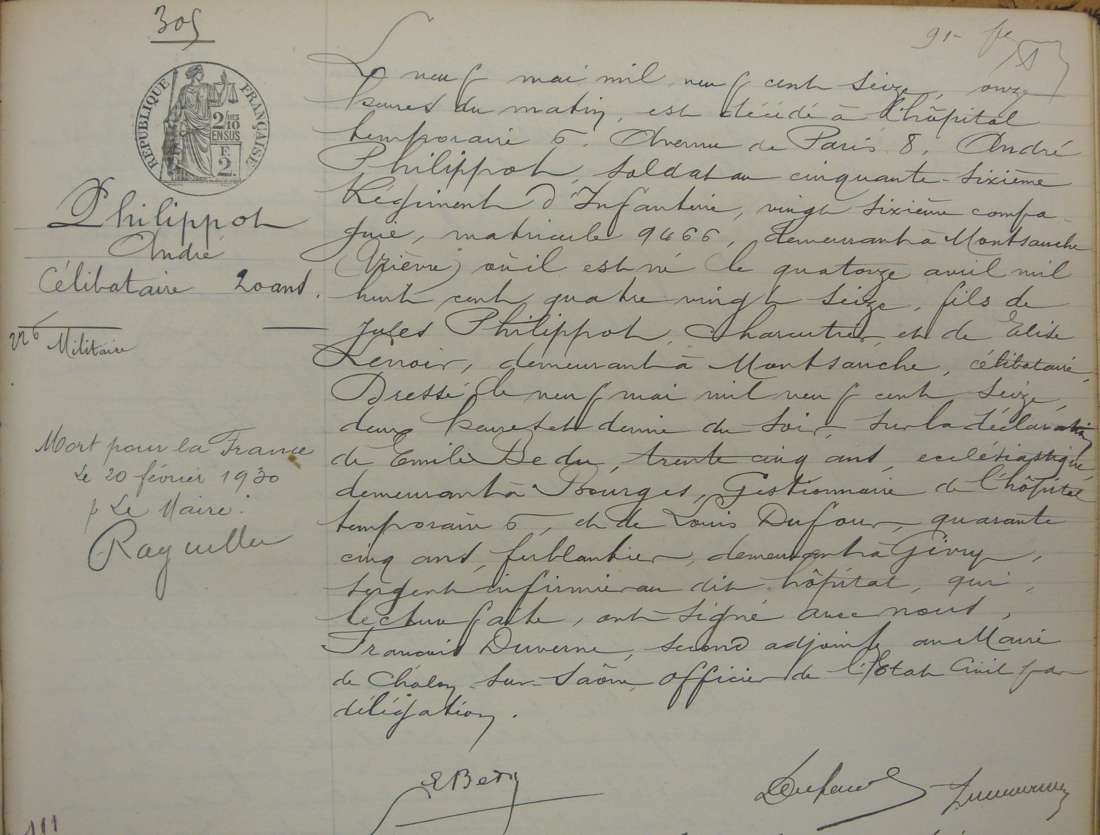 305
91
RÉPUBLIQUE FRANÇAISE
2/10
EN SUS
2
F
Philippot
André
Célibataire 20 ans.
226
Militaire
Mort pour la France
le 20 février 1930
p Le Maire.
Le neuf mai mil neuf cent seize, onze
heures du matin, est décédé à l'hôpital
temporaire 6, Avenue de Paris 8, André
Philippot, soldat au cinquante-sixième
Régiment d'Infanterie, vingt sixième compa-
gnie, matricule 9466, demeurant à Montsauche
(Nièvre) où il est né le quatorze avril mil
huit cent quatre vingt seize, fils de
Jules Philippot, charcutier, et de Elise
Lenoir, demeurant à Montsauche, célibataire,
Dressé le neuf mai mil neuf cent seize,
deux heures et demie du soir, sur la déclaration
de Emile Bedu, trente cinq ans, ecclésiastique,
demeurant à Bourges, Gestionnaire de l'hôpital
temporaire 6, et de Louis Dufour, quarante
cinq ans, ferblantier, demeurant à Givry,
sergent infirmier au dit hôpital, qui,
lecture faite, ont signé avec nous,
François Duverne, second adjoint au Maire
de Chalon-sur-Saône, officier de l'Etat Civil par
délégation.
E Bedu
LDufour